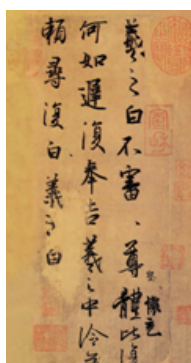 羲之白不審尊體比
何如遲復奉告羲之中冷
賴尋復白羲之白